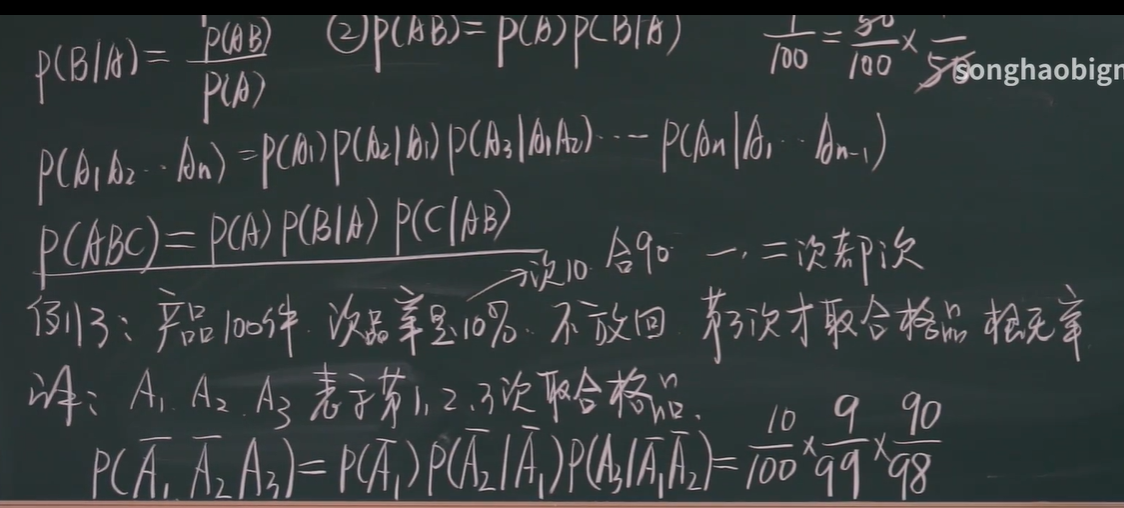 P(B|A)= P(AB)/P(A) ②P(AB)=P(A)P(B|A) 1/100 = 50/100 × /50
songhaobign
P(A₁A₂··Aₙ)=P(A₁)P(A₂|A₁)P(A₃|A₁A₂)···· P(Aₙ|A₁··Aₙ₋₁)
P(ABC)=P(A)P(B|A)P(C|AB)
→次10. 合90 一、二次都次
例3: 产品100件. 次品率是10%. 不放回 第3次才取合格品 概率
译: A₁. A₂. A₃ 表示第1,2,3次取合格品.
P(A̅₁ A̅₂ A₃)=P(A̅₁)P(A̅₂|A̅₁)P(A₃|A̅₁A̅₂)= 10/100 × 9/99 × 90/98